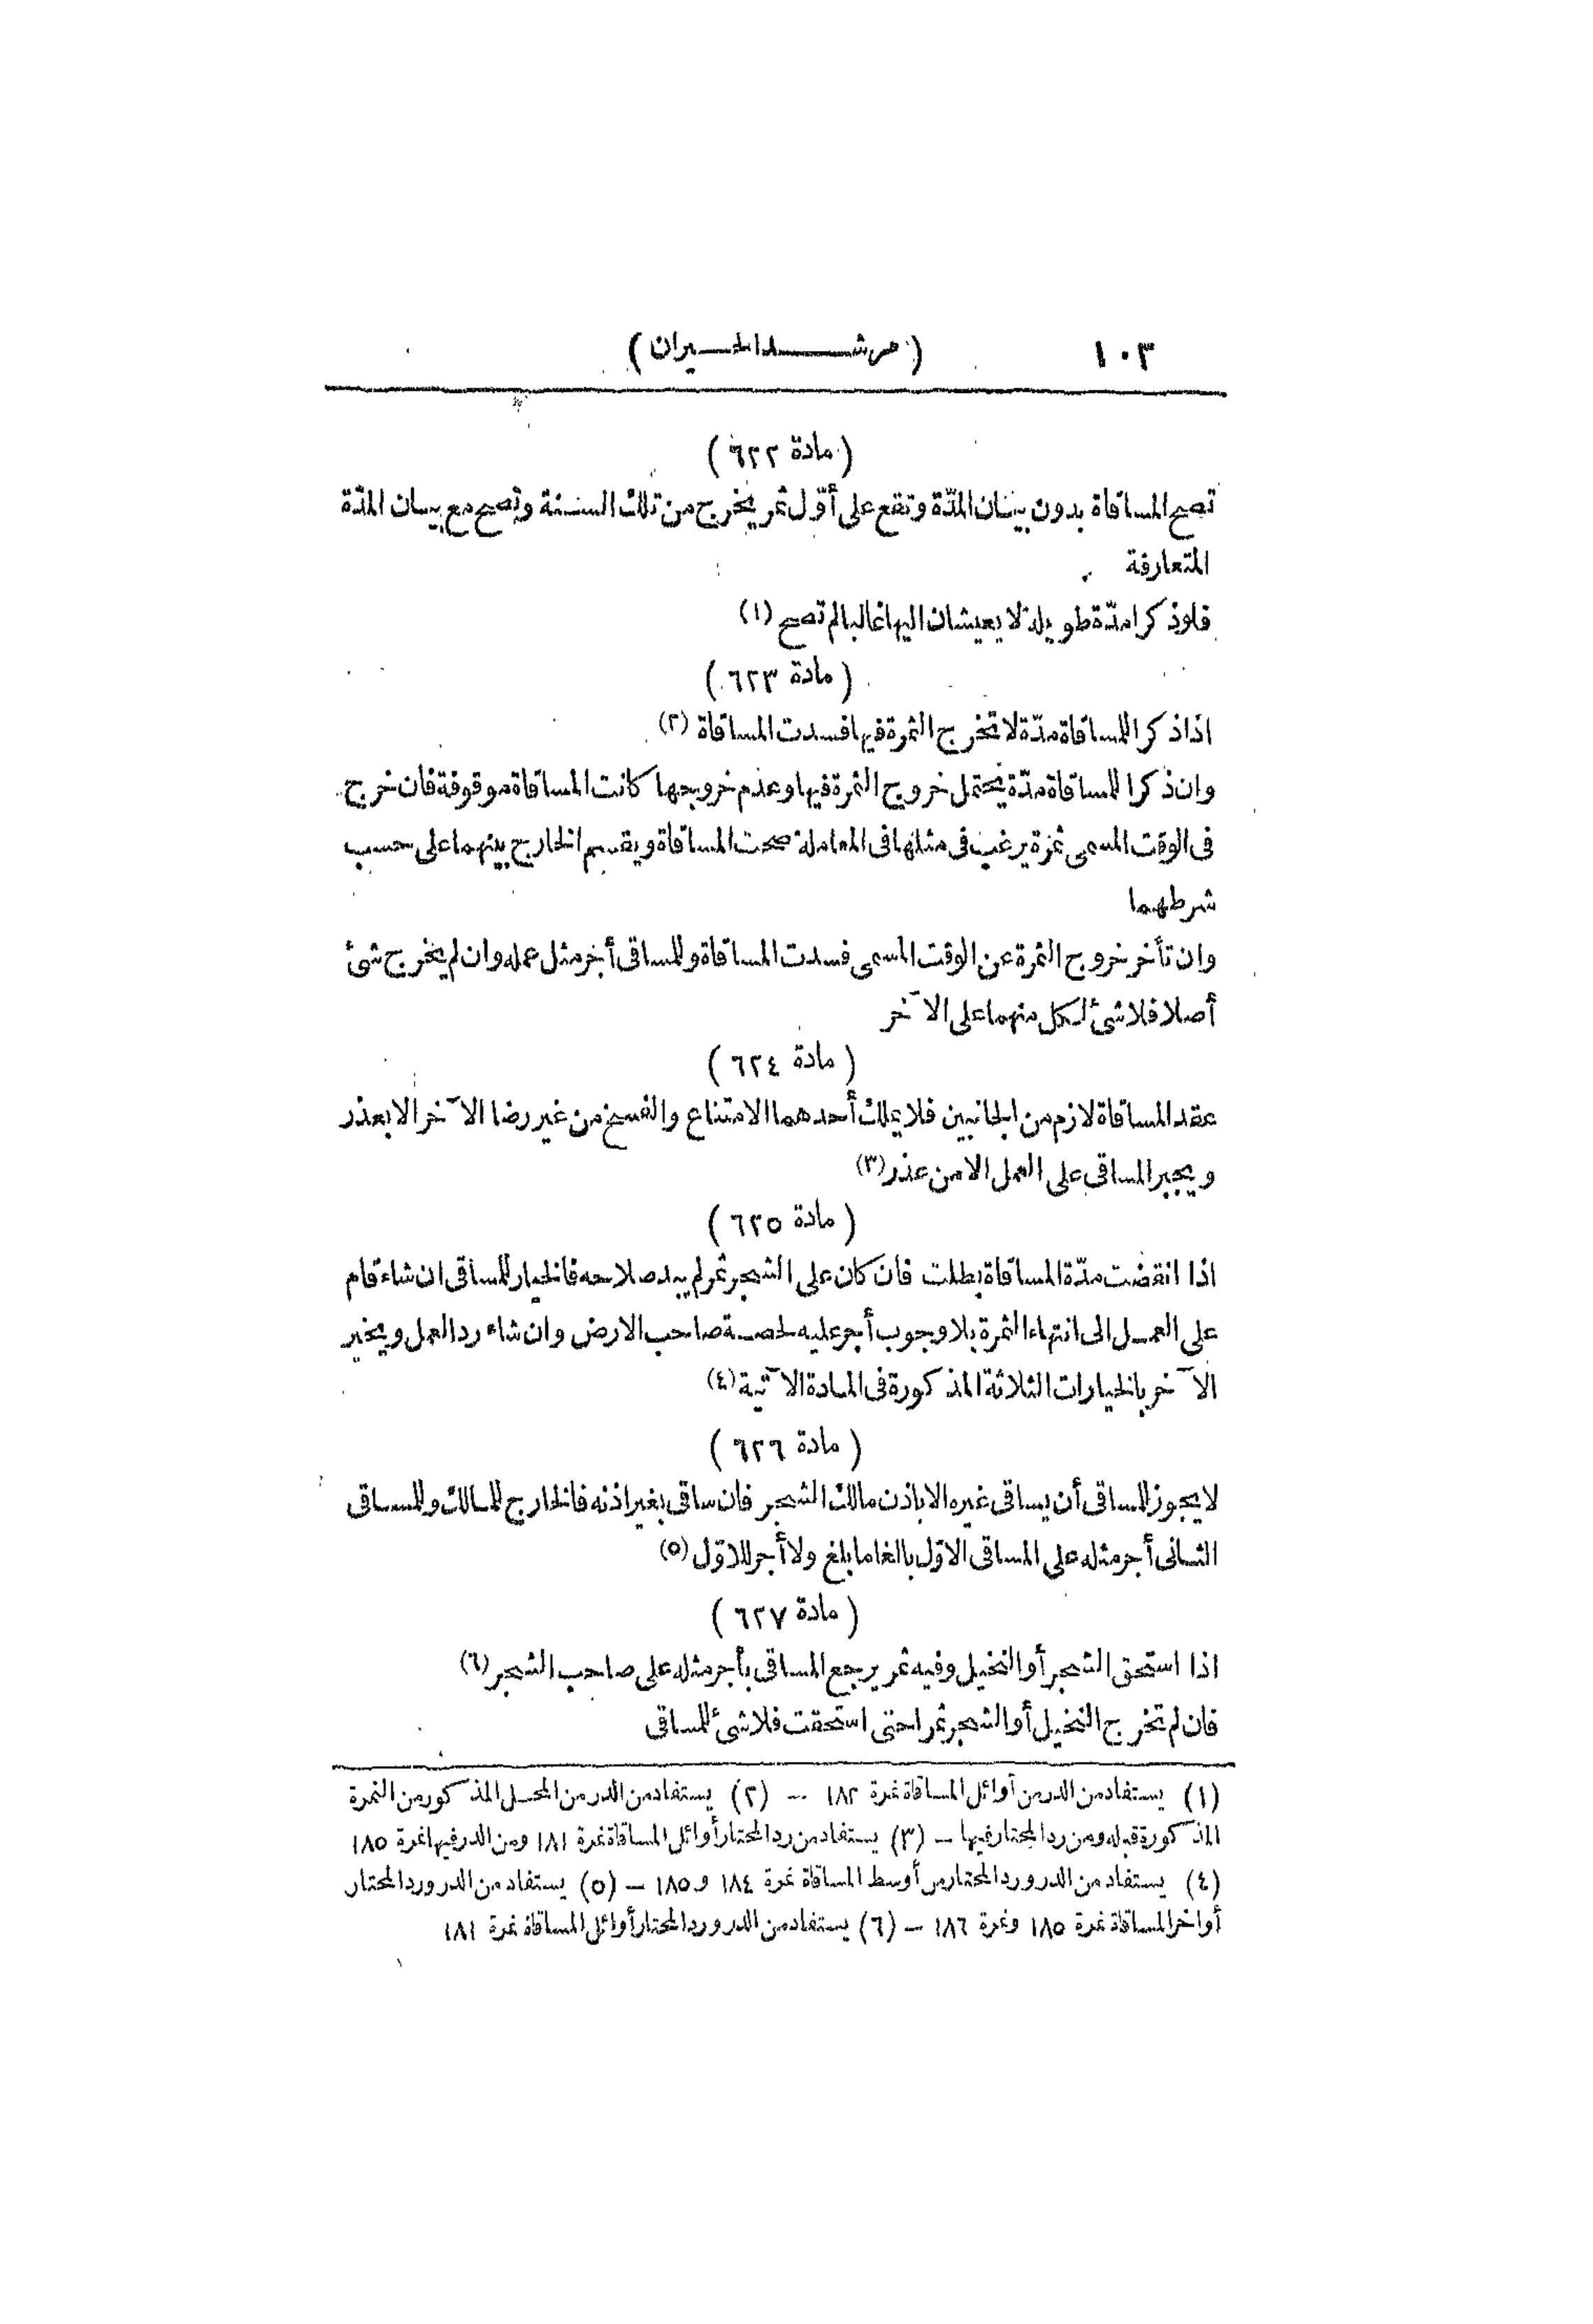 ١٠٣
(مرشد الحيران)
(مادة ٦٢٢)
تصح المساقاة بدون بيان المدّة وتقع على أوّل ثمر يخرج من تلك السنة وتصح مع بيان المدّة
المتعارفة
فلو ذكرا مدّة طويلة لا يعيشان اليها غالبا لم تصح (١)
(مادة ٦٢٣)
اذا ذكرا للمساقاة مدّة لا تخرج الثمرة فيها فسدت المساقاة (٢)
وان ذكرا للمساقاة مدّة يحتمل خروج الثمرة فيها وعدم خروجها كانت المساقاة موقوفة فان خرج
فى الوقت المسمى ثمرة يرغب فى مثلها فى المعاملة صحت المساقاة ويقسم الخارج بينهما على حسب
شرطهما
وان تأخر خروج الثمرة عن الوقت المسمى فسدت المساقاة وللمساقى أجر مثل عمله وان لم يخرج شئ
أصلا فلا شئ لكل منهما على الآخر
(مادة ٦٢٤)
عقد المساقاة لازم من الجانبين فلا يملك أحدهما الامتناع والفسخ من غير رضا الآخر الا بعذر
ويجبر المساقى على العمل الا من عذر (٣)
(مادة ٦٢٥)
اذا انقضت مدّة المساقاة بطلت فان كان على الشجر ثمر لم يبد صلاحه فالخيار للمساقى ان شاء قام
على العمل الى انتهاء الثمرة بلا وجوب أجر عليه لحصة صاحب الارض وان شاء رد العمل ويخير
الآخر بالخيارات الثلاثة المذكورة فى المادة الآتية (٤)
(مادة ٦٢٦)
لا يجوز للمساقى أن يساقى غيره الا باذن مالك الشجر فان ساقى بغير اذنه فالخارج للمالك وللمساقى
الثانى أجر مثله على المساقى الاوّل بالغا ما بلغ ولا أجر للاوّل (٥)
(مادة ٦٢٧)
اذا استحق الشجر أو النخيل وفيه ثمر يرجع المساقى بأجر مثله على صاحب الشجر (٦)
فان لم تخرج النخيل أو الشجر ثمرا حتى استحقت فلا شئ للمساقى
(١) يستفاد من الدر من أوائل المساقاة نمرة ١٨٢ — (٢) يستفاد من الدر من المحل المذكور من النمرة
المذكورة قبله ومن رد المحتار فيها — (٣) يستفاد من رد المحتار أوائل المساقاة نمرة ١٨١ ومن الدر فيها نمرة ١٨٥
(٤) يستفاد من الدر ورد المحتار من أوسط المساقاة نمرة ١٨٤ و ١٨٥ — (٥) يستفاد من الدر ورد المحتار
أواخر المساقاة نمرة ١٨٥ ونمرة ١٨٦ — (٦) يستفاد من الدر ورد المحتار أوائل المساقاة نمرة ١٨١